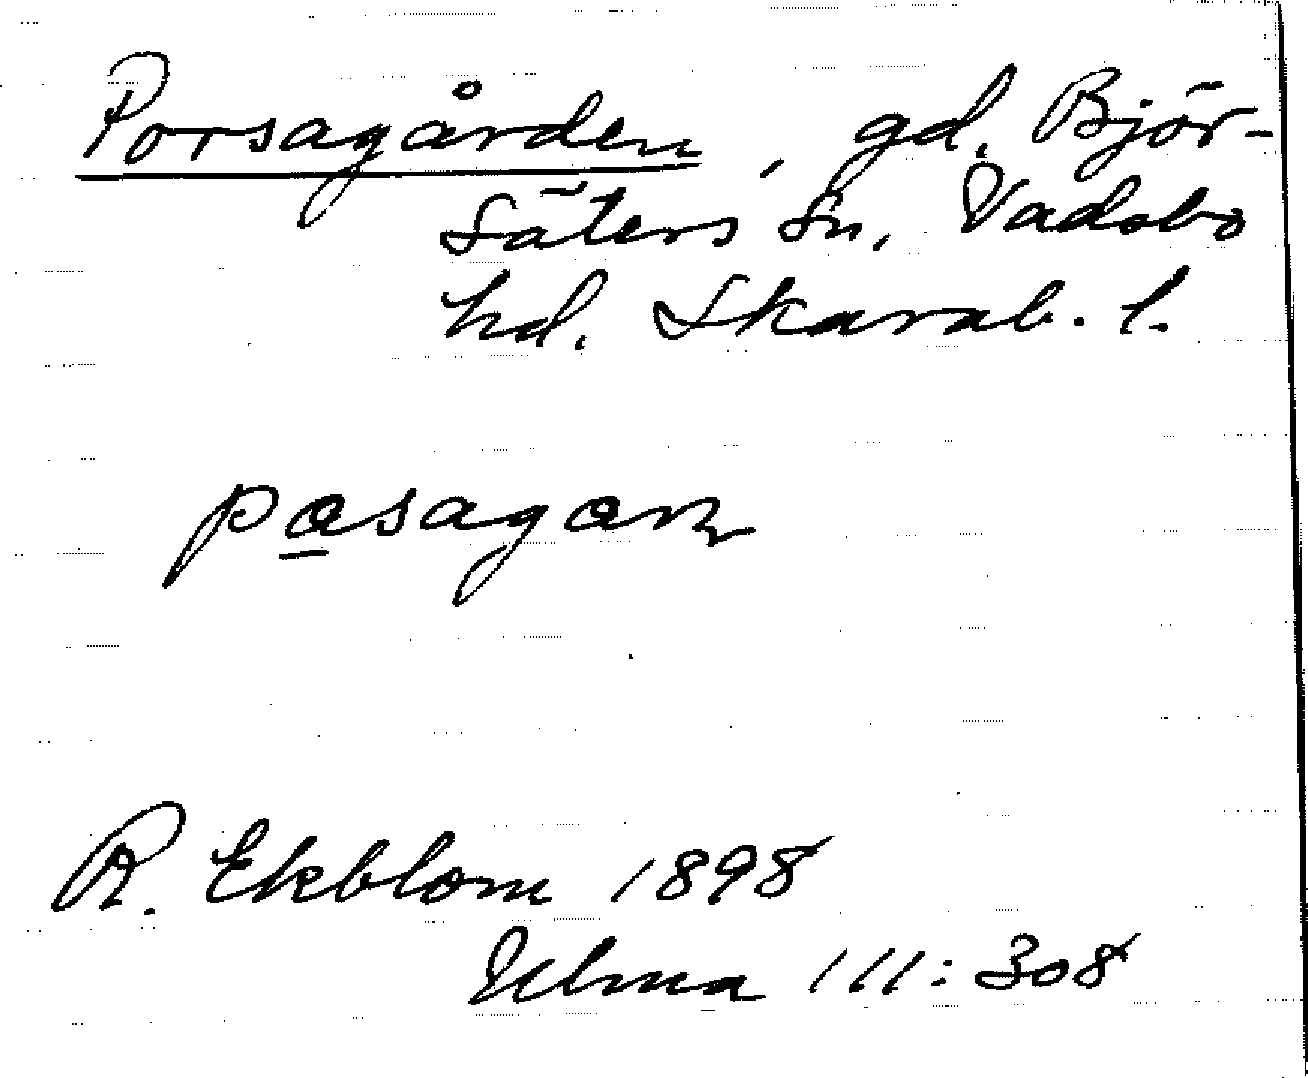 Porsagården, gd. Björ-
säters sn, Vadsbo
hd. Skarab. l.
pasagaɳ
R. Ekblom 1898
Ulma 111:308